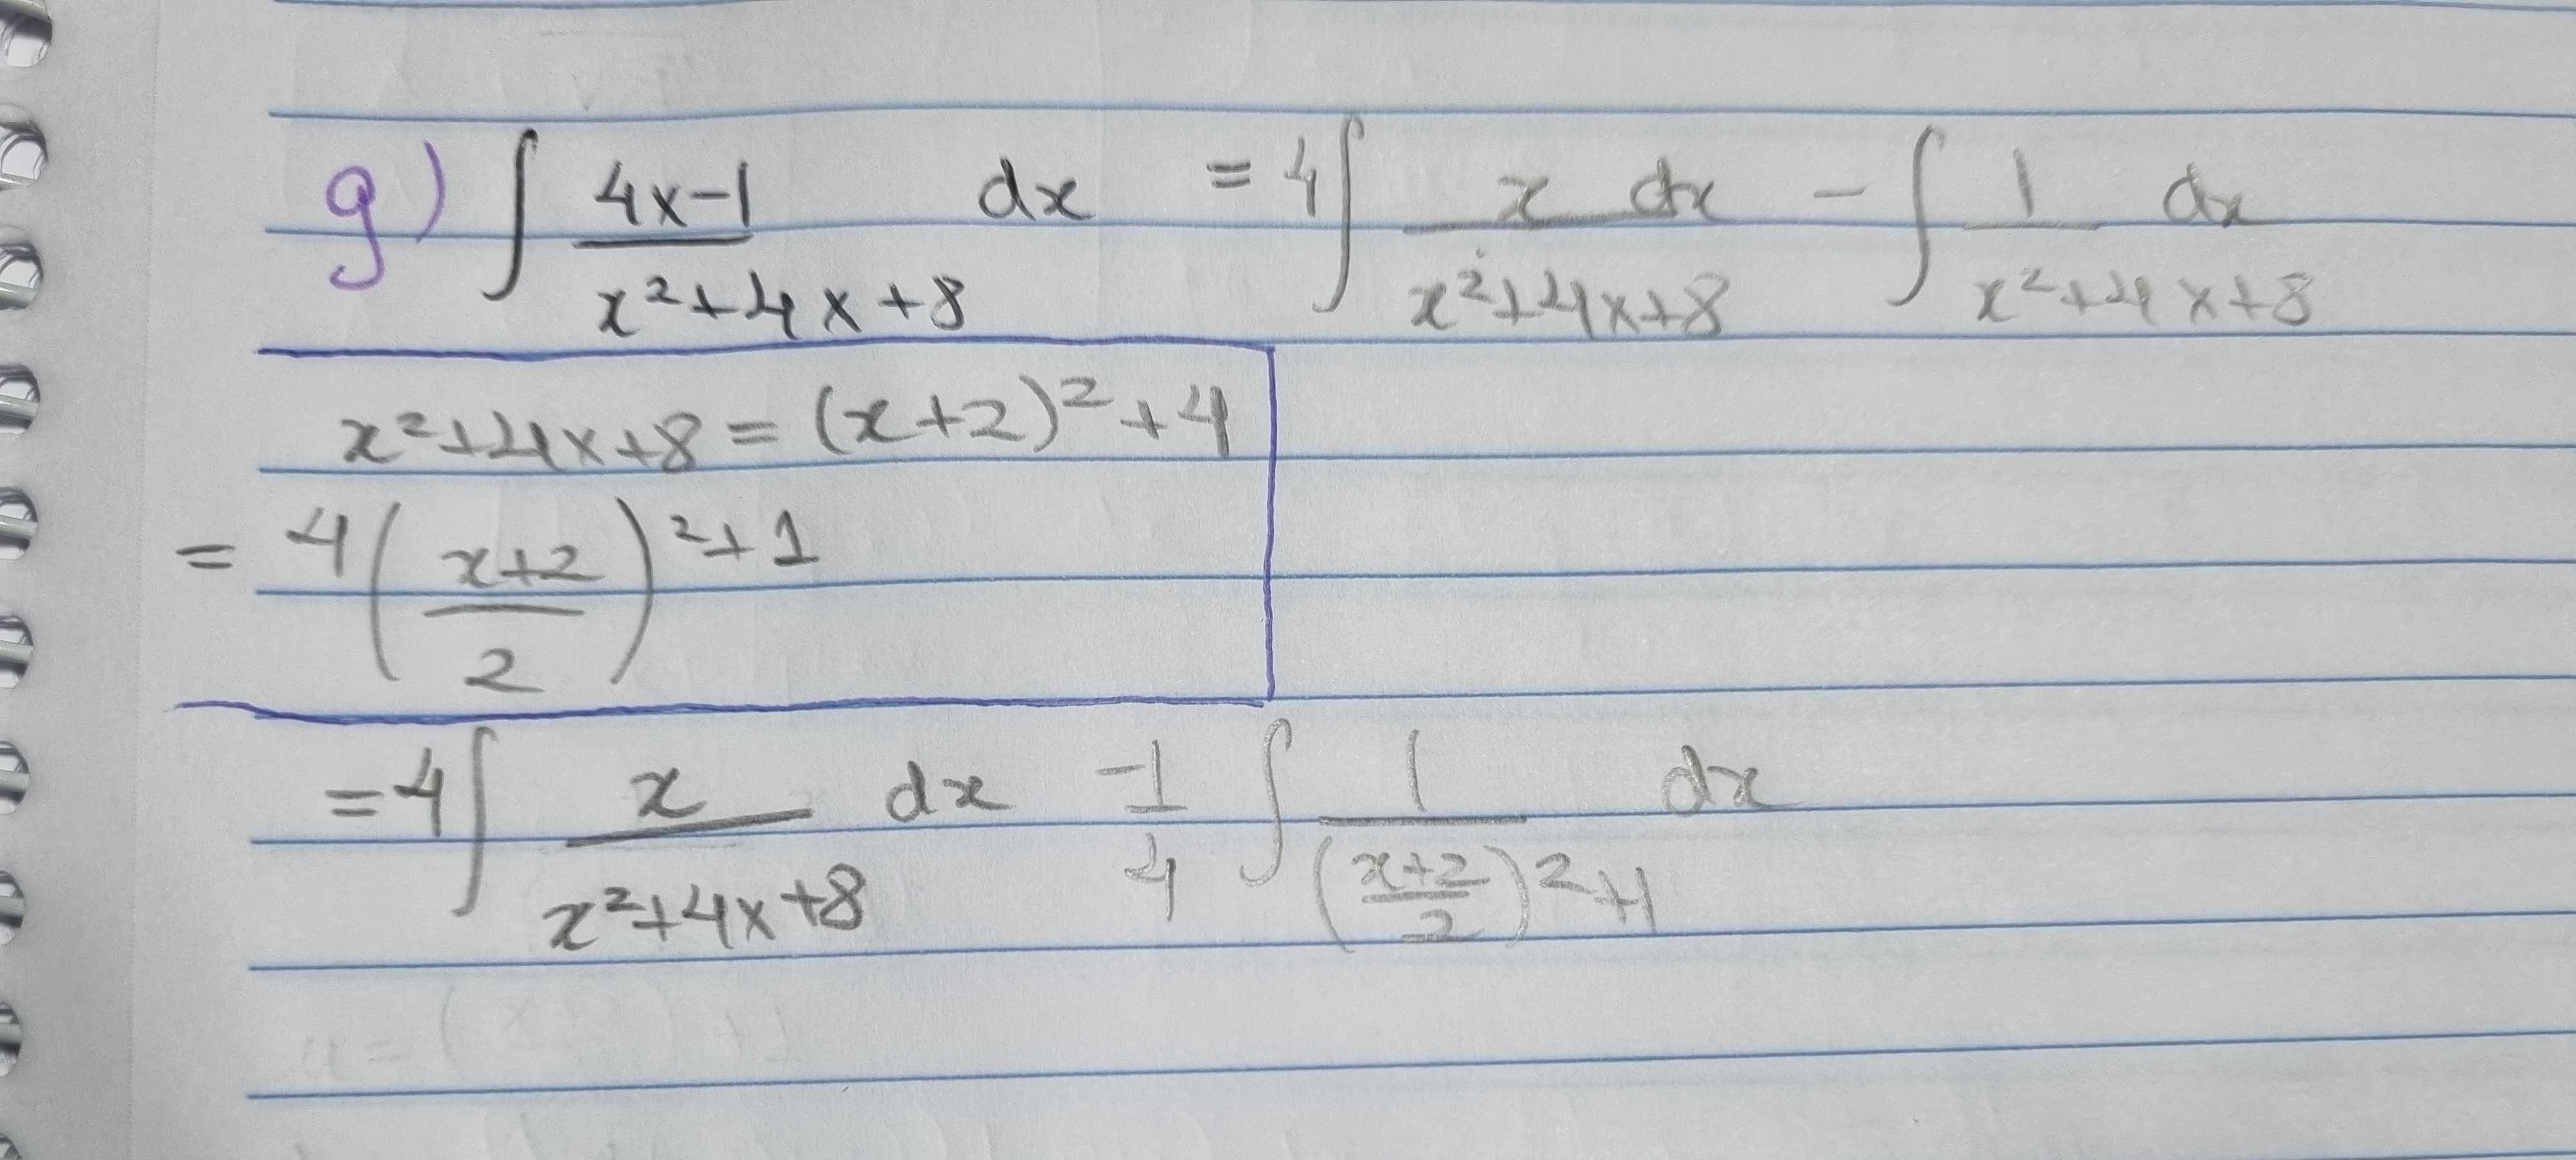 g) ∫ (4x-1)/(x²+4x+8) dx = 4∫ (x dx)/(x²+4x+8) - ∫ 1/(x²+4x+8) dx
x²+4x+8 = (x+2)²+4
= 4((x+2)/2)²+1
= 4∫ x/(x²+4x+8) dx -1/4 ∫ 1/(((x+2)/2)²+1) dx